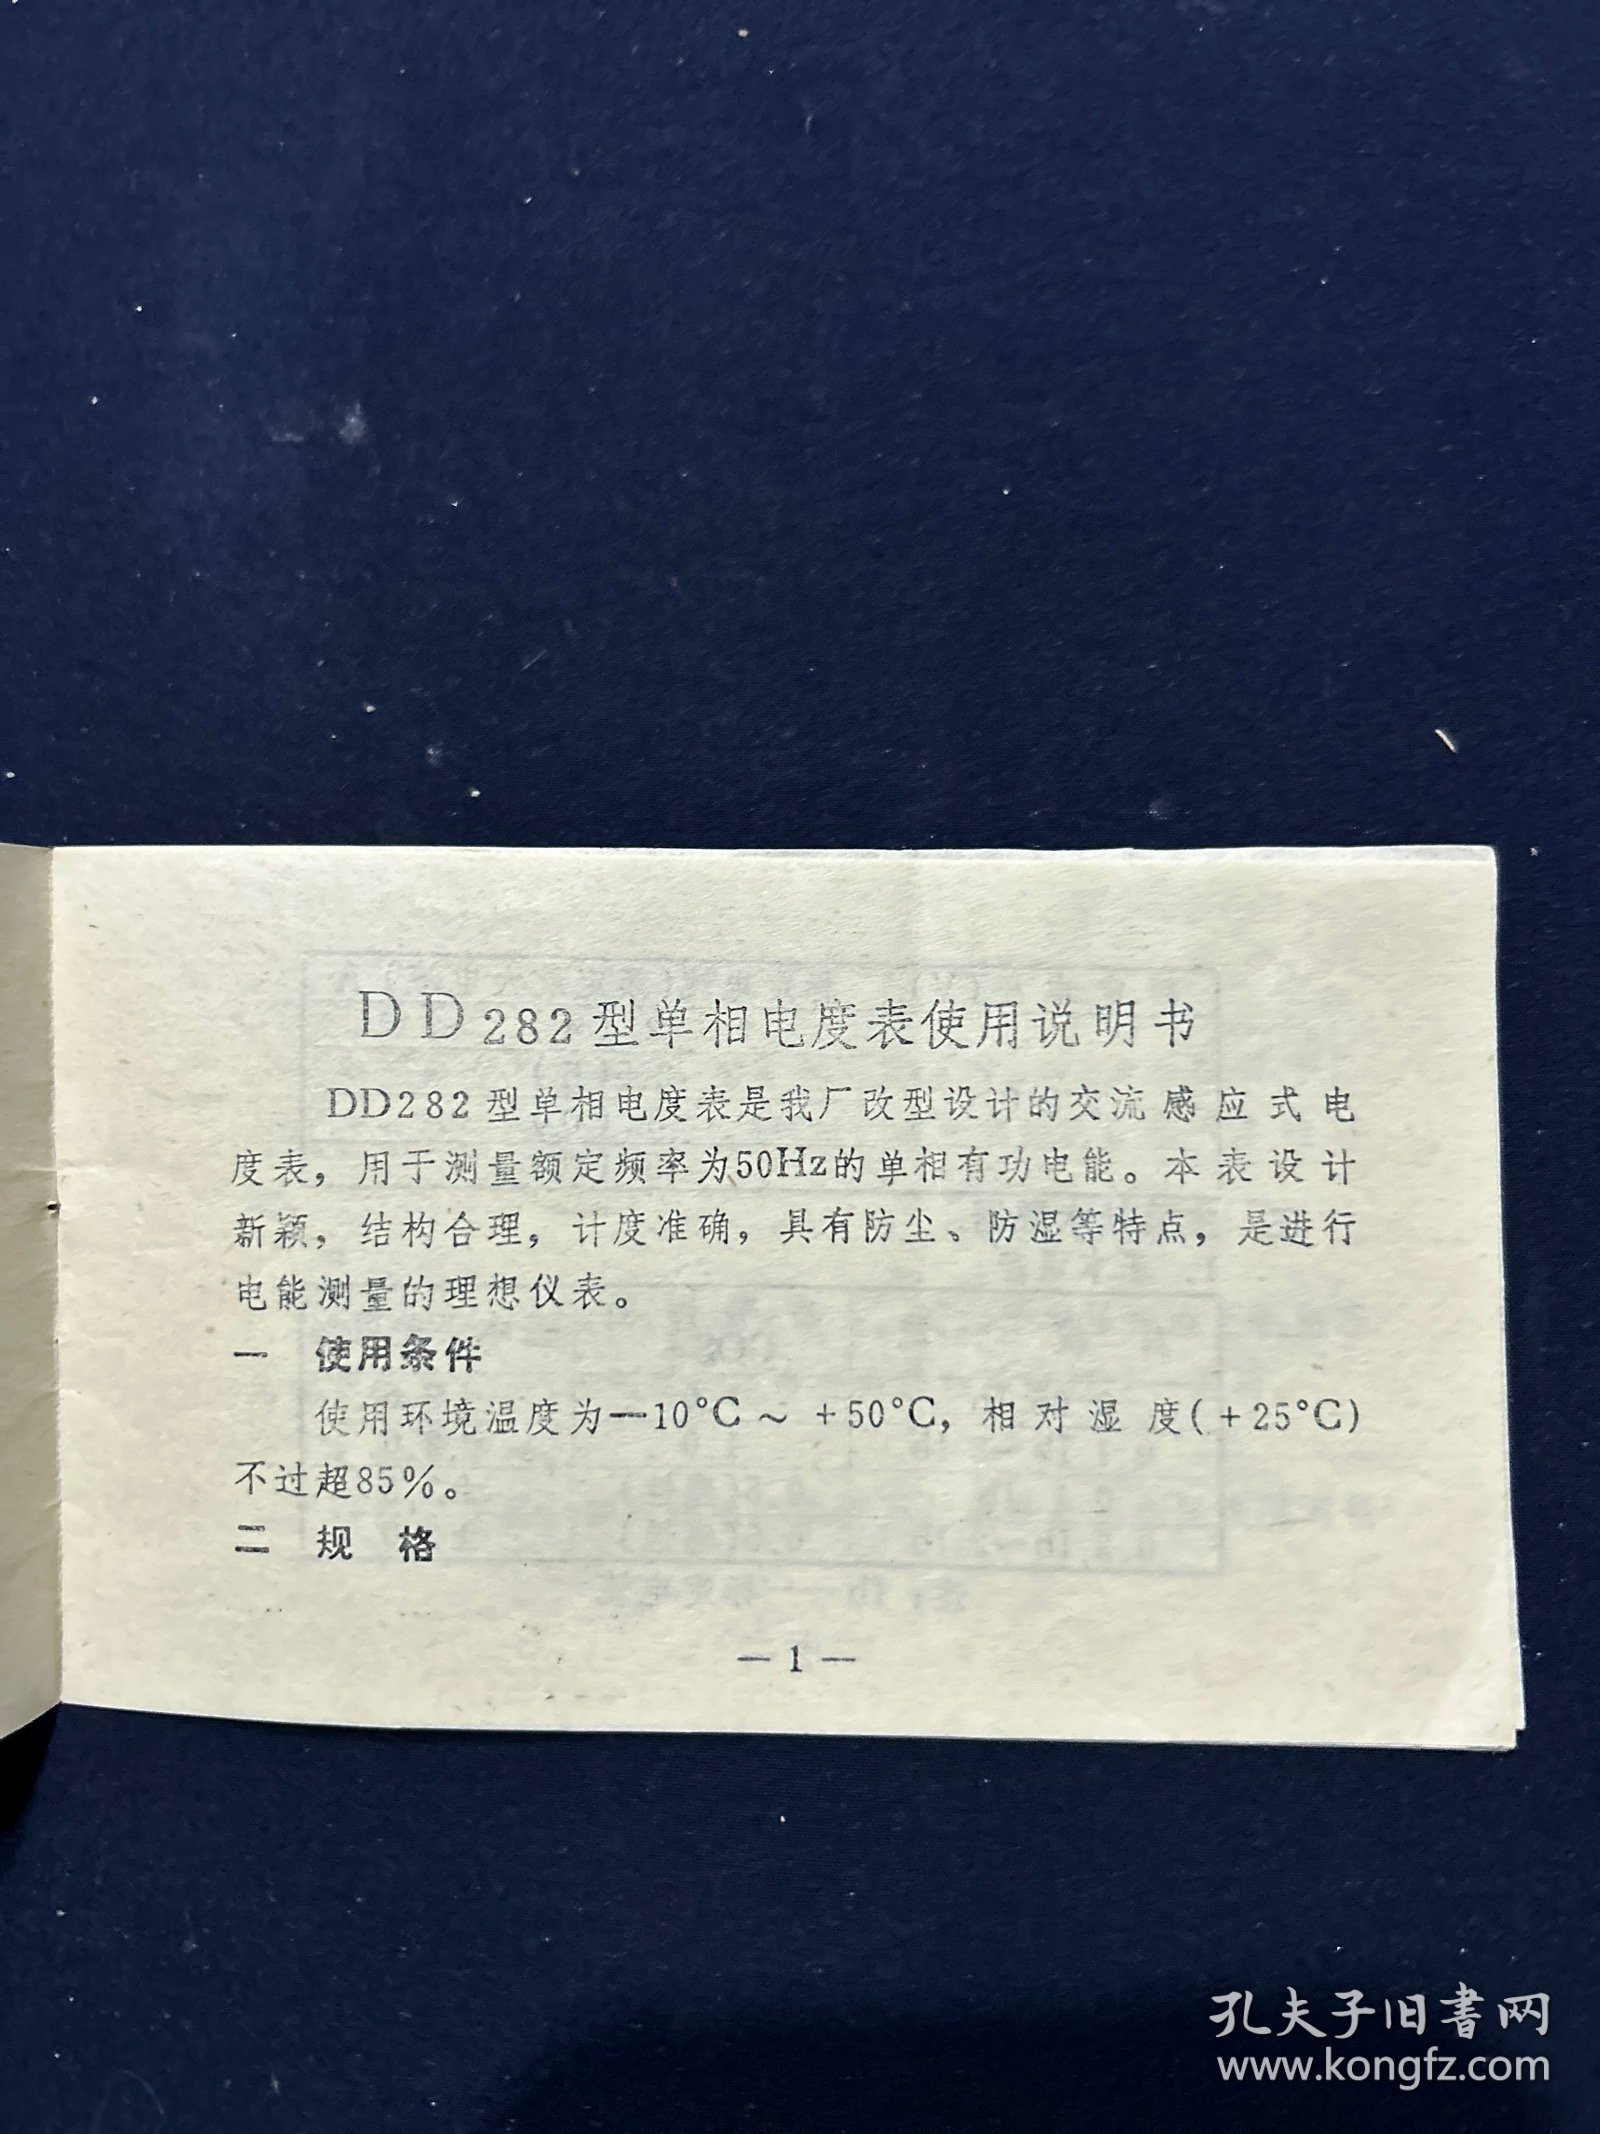 DD282型单相电度表使用说明书
DD282型单相电度表是我厂改型设计的交流感应式电
度表，用于测量额定频率为50Hz的单相有功电能。本表设计
新颖，结构合理，计度准确，具有防尘、防湿等特点，是进行
电能测量的理想仪表。
一 使用条件
使用环境温度为—10°C～+50°C，相对湿度(+25°C)
不过超85%。
二 规 格
— 1 —
孔夫子旧书网
www.kongfz.com